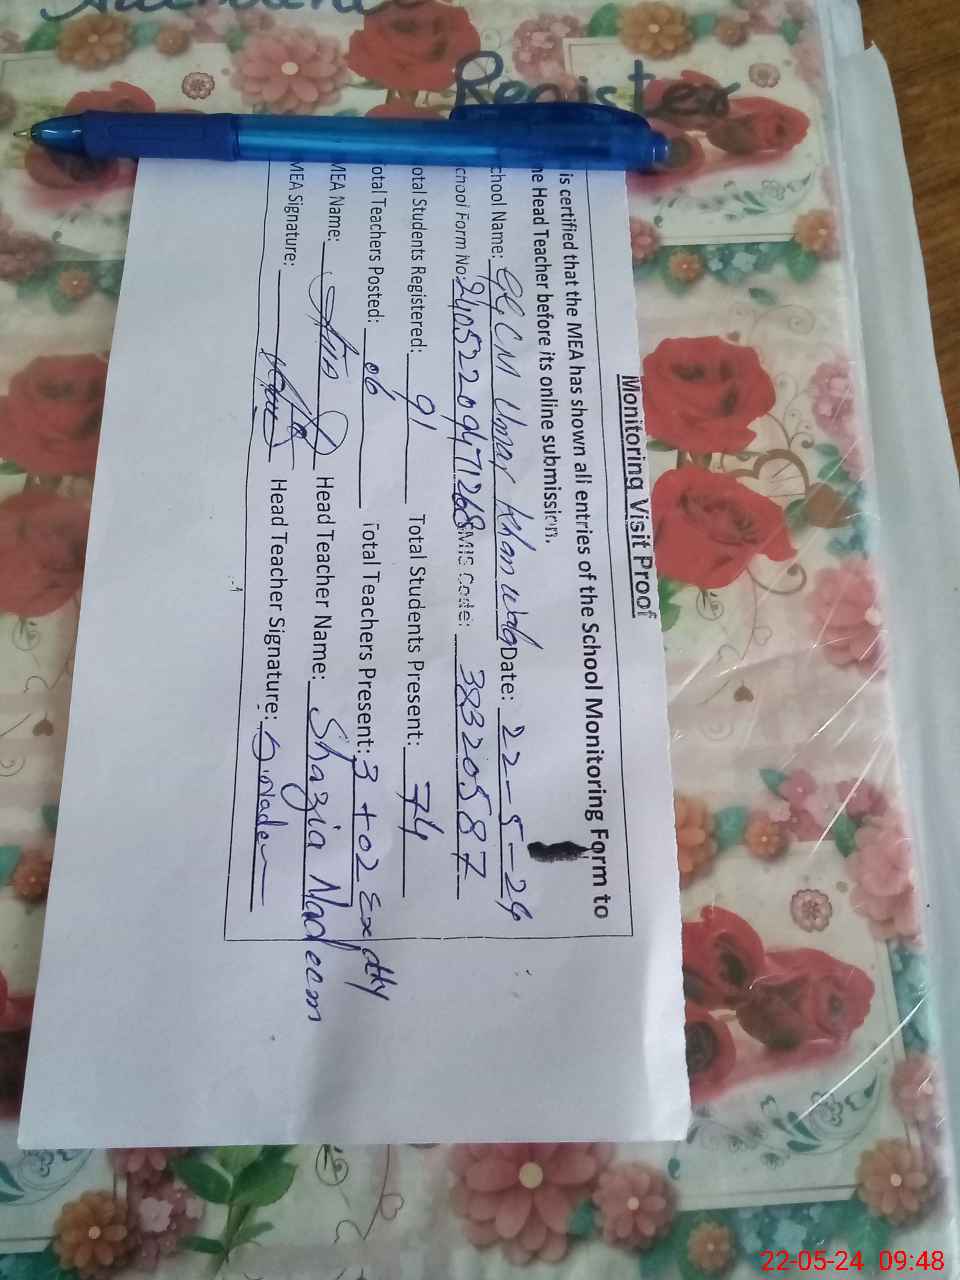 Attendance
Register
Monitoring Visit Proof
is certified that the MEA has shown all entries of the School Monitoring Form to
he Head Teacher before its online submission.
chool Name: GGCM Umar Khan wala Date: 22-5-24
chool Form No: 24052209471268 EMIS Code: 38320587
otal Students Registered: 91 Total Students Present: 74
otal Teachers Posted: 06 Total Teachers Present: 3 + 02 Ex dty
MEA Name: Head Teacher Name: Shazia Nadeem
MEA Signature: Head Teacher Signature: S.Nadeem
22-05-24 09:48